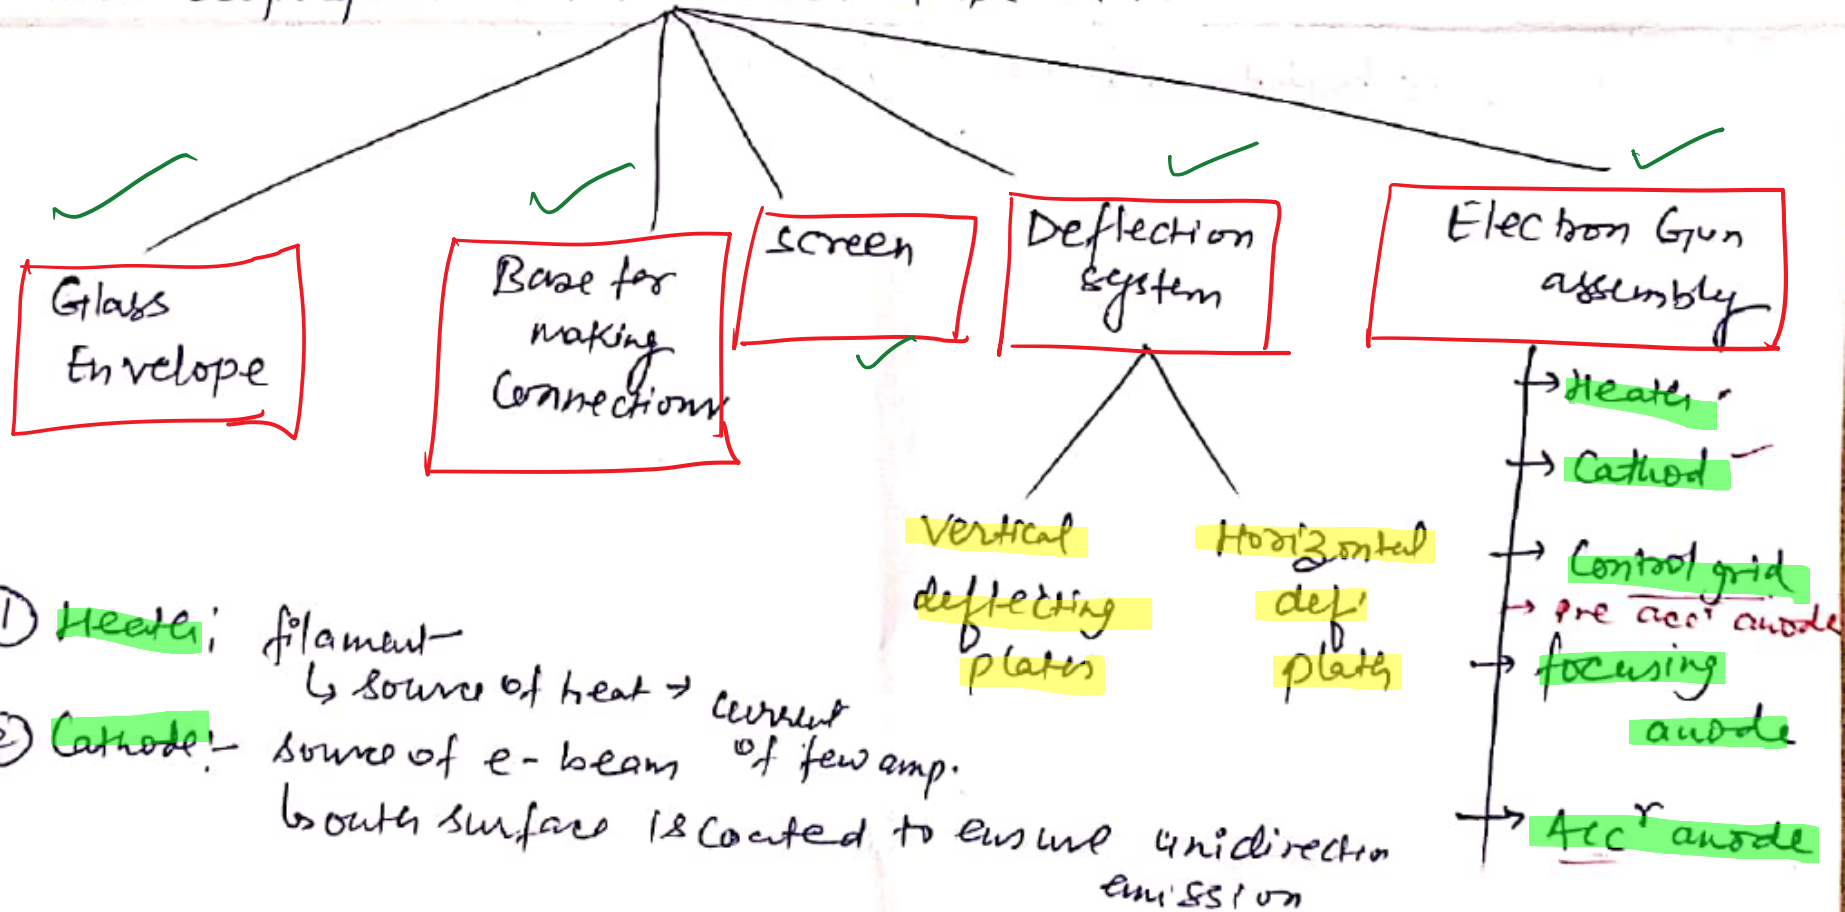 Glass
Envelope
Base for
making
Connections
screen
Deflection
system
Electron Gun
assembly
Vertical
deflecting
plates
Horizontal
def.
plates
→ Heater
→ Cathod
→ Control grid
→ Pre accr anode
→ focusing
anode
→ Accr anode
① Heater: filament
↳ source of heat → current
of few amp.
② Cathode:- source of e-beam
↳ outer surface is coated to ensure unidirection
emission